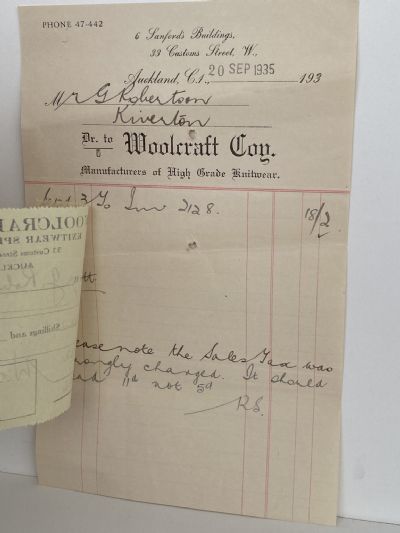 PHONE 47-442
6 Sanford's Buildings,
33 Customs Street, W.,
Auckland, C.1., 20 SEP 1935 193
Mr G Robertson
Riverton
Dr. to Woolcraft Coy.
Manufacturers of High Grade Knitwear.
3 To Inv 2128. 18/2
ease note the Sales Tax was
rongly charged. It should
11d not 5d
R.S.
OOLCRA
KNITWEAR SPE
33 Customs Stree
AUCKL
Shillings and